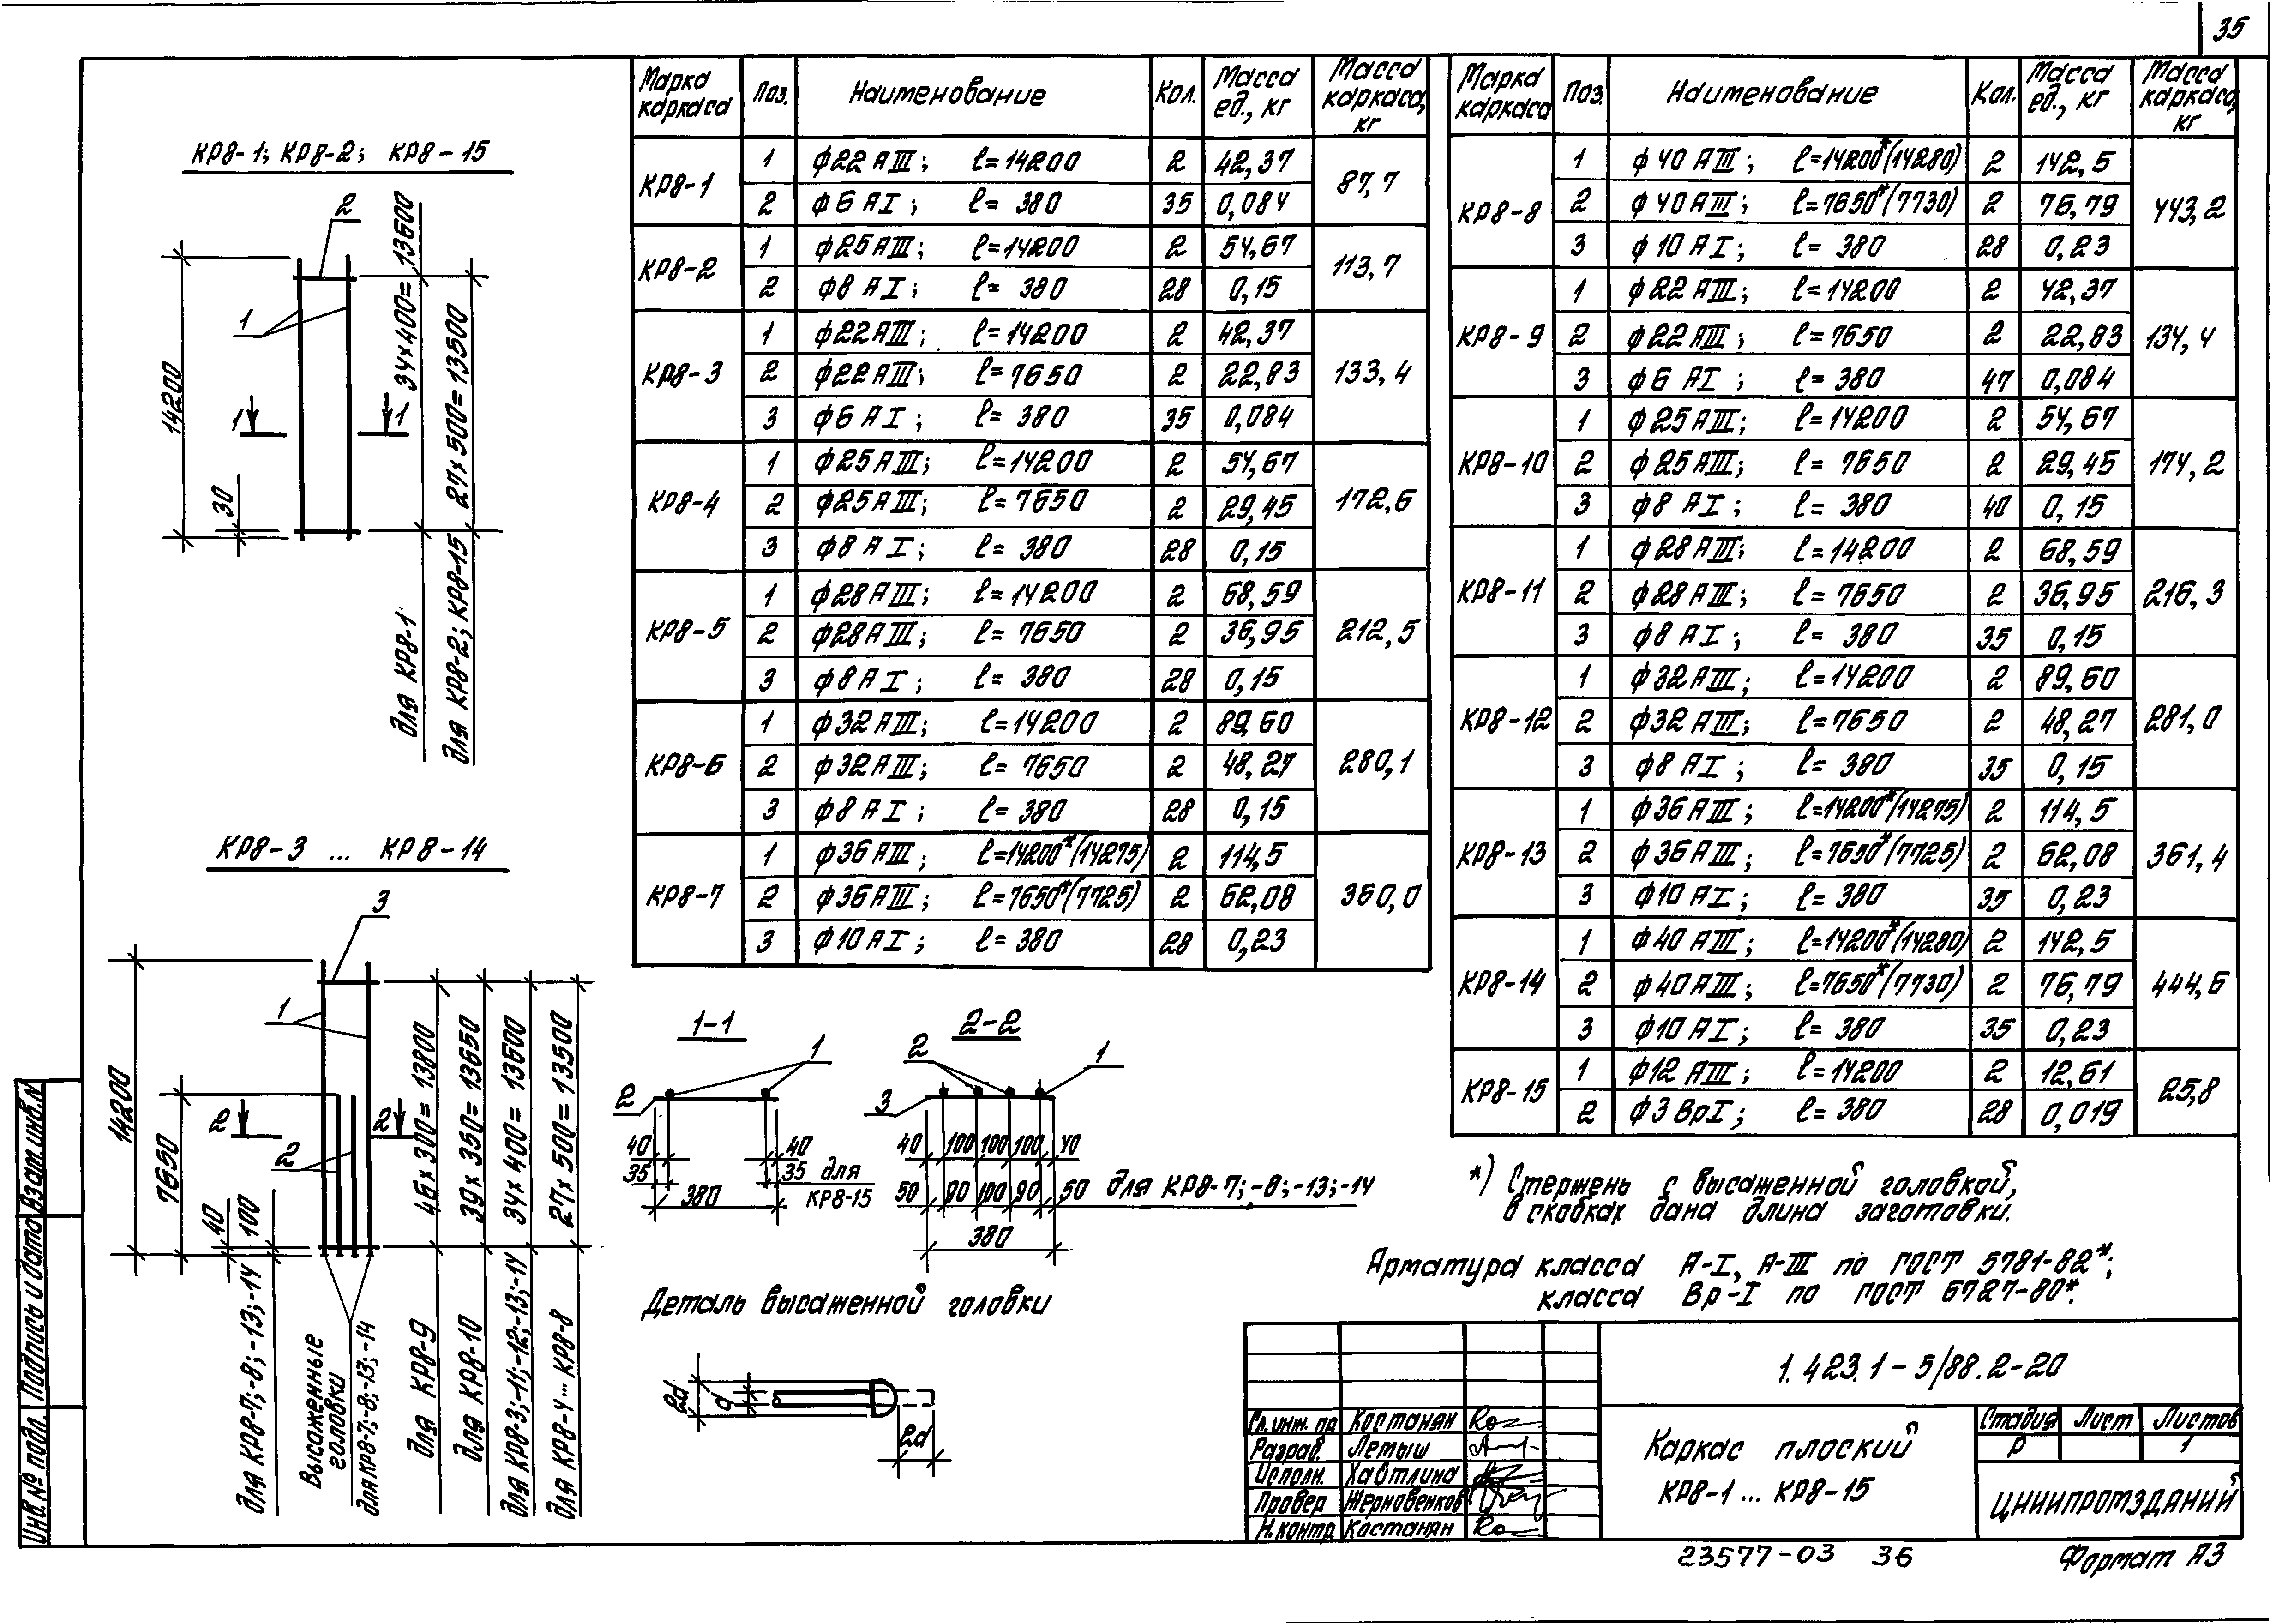 35
КР8-1; КР8-2; КР8-15
2
1
14200
30
1 1
34×400=13600
27×500=13500
для КР8-1
для КР8-2; КР8-15
КР8-3 ... КР8-14
3
1
2
2 2
14200
7650
40
100
46×300=13800
39×350=13650
34×400=13600
27×500=13500
для КР8-7;-8;-13;-14
Высаженные
головки
для КР8-7;-8;-13;-14
для КР8-9
для КР8-10
для КР8-3;-11;-12;-13;-14
для КР8-4... КР8-8
Марка каркаса Поз. Наименование Кол. Масса ед., кг Масса каркаса, кг
КР8-1 1 ф22 АIII; ℓ=14200 2 42,37 87,7
2 ф6 АI; ℓ= 380 35 0,084
КР8-2 1 ф25АIII; ℓ=14200 2 54,67 113,7
2 ф8 АI; ℓ= 380 28 0,15
КР8-3 1 ф22АIII; ℓ=14200 2 42,37 133,4
2 ф22АIII; ℓ=7650 2 22,83
3 ф6 АI; ℓ= 380 35 0,084
КР8-4 1 ф25АIII; ℓ=14200 2 54,67 172,6
2 ф25АIII; ℓ=7650 2 29,45
3 ф8 АI; ℓ= 380 28 0,15
КР8-5 1 ф28АIII; ℓ=14200 2 68,59 212,5
2 ф28АIII; ℓ= 7650 2 36,95
3 ф8 АI; ℓ= 380 28 0,15
КР8-6 1 ф32АIII; ℓ=14200 2 89,60 280,1
2 ф32АIII; ℓ= 7650 2 48,27
3 ф8 АI; ℓ= 380 28 0,15
КР8-7 1 ф36АIII; ℓ=14200*(14275) 2 114,5 360,0
2 ф36АIII; ℓ=7650*(7725) 2 62,08
3 ф10 АI; ℓ= 380 28 0,23
Марка каркаса Поз. Наименование Кол. Масса ед., кг Масса каркаса, кг
КР8-8 1 ф40 АIII; ℓ=14200*(14280) 2 142,5 443,2
2 ф40АIII; ℓ=7650*(7730) 2 76,79
3 ф10 АI; ℓ= 380 28 0,23
КР8-9 1 ф22 АIII; ℓ=14200 2 42,37 134,4
2 ф22АIII; ℓ=7650 2 22,83
3 ф6 АI; ℓ= 380 47 0,084
КР8-10 1 ф25АIII; ℓ=14200 2 54,67 174,2
2 ф25АIII; ℓ= 7650 2 29,45
3 ф8 АI; ℓ= 380 40 0,15
КР8-11 1 ф28АIII; ℓ=14200 2 68,59 216,3
2 ф28АIII; ℓ= 7650 2 36,95
3 ф8 АI; ℓ= 380 35 0,15
КР8-12 1 ф32АIII; ℓ=14200 2 89,60 281,0
2 ф32АIII; ℓ=7650 2 48,27
3 ф8 АI; ℓ= 380 35 0,15
КР8-13 1 ф36 АIII; ℓ=14200*(14275) 2 114,5 361,4
2 ф36АIII; ℓ=7650*(7725) 2 62,08
3 ф10 АI; ℓ= 380 35 0,23
КР8-14 1 ф40 АIII; ℓ=14200*(14280) 2 142,5 444,6
2 ф40АIII; ℓ=7650*(7730) 2 76,79
3 ф10 АI; ℓ= 380 35 0,23
КР8-15 1 ф12 АIII; ℓ=14200 2 12,61 25,8
2 ф3 ВрI; ℓ= 380 28 0,019
1-1
1
2
40 40
35 35 для КР8-15
380
2-2
2 1
3
40 100 100 100 40
50 90 100 90 50 для КР8-7;-8;-13;-14
380
Деталь высаженной головки
2d d
2d
*) Стержень с высаженной головкой,
в скобках дана длина заготовки.
Арматура класса А-I, А-III по ГОСТ 5781-82*;
класса Вр-I по ГОСТ 6727-80*.
Взам.инв.№
Подпись и дата
Инв.№ подл.
1.423.1-5/88.2-20
Гл.инж.пр Костанян
Разраб. Лемыш
Исполн. Хайтлина
Провер Жерновенков
Н.контр Костанян
Каркас плоский
КР8-1 ... КР8-15
Стадия Лист Листов
Р 1
ЦНИИПРОМЗДАНИЙ
23577-03 36
Формат А3